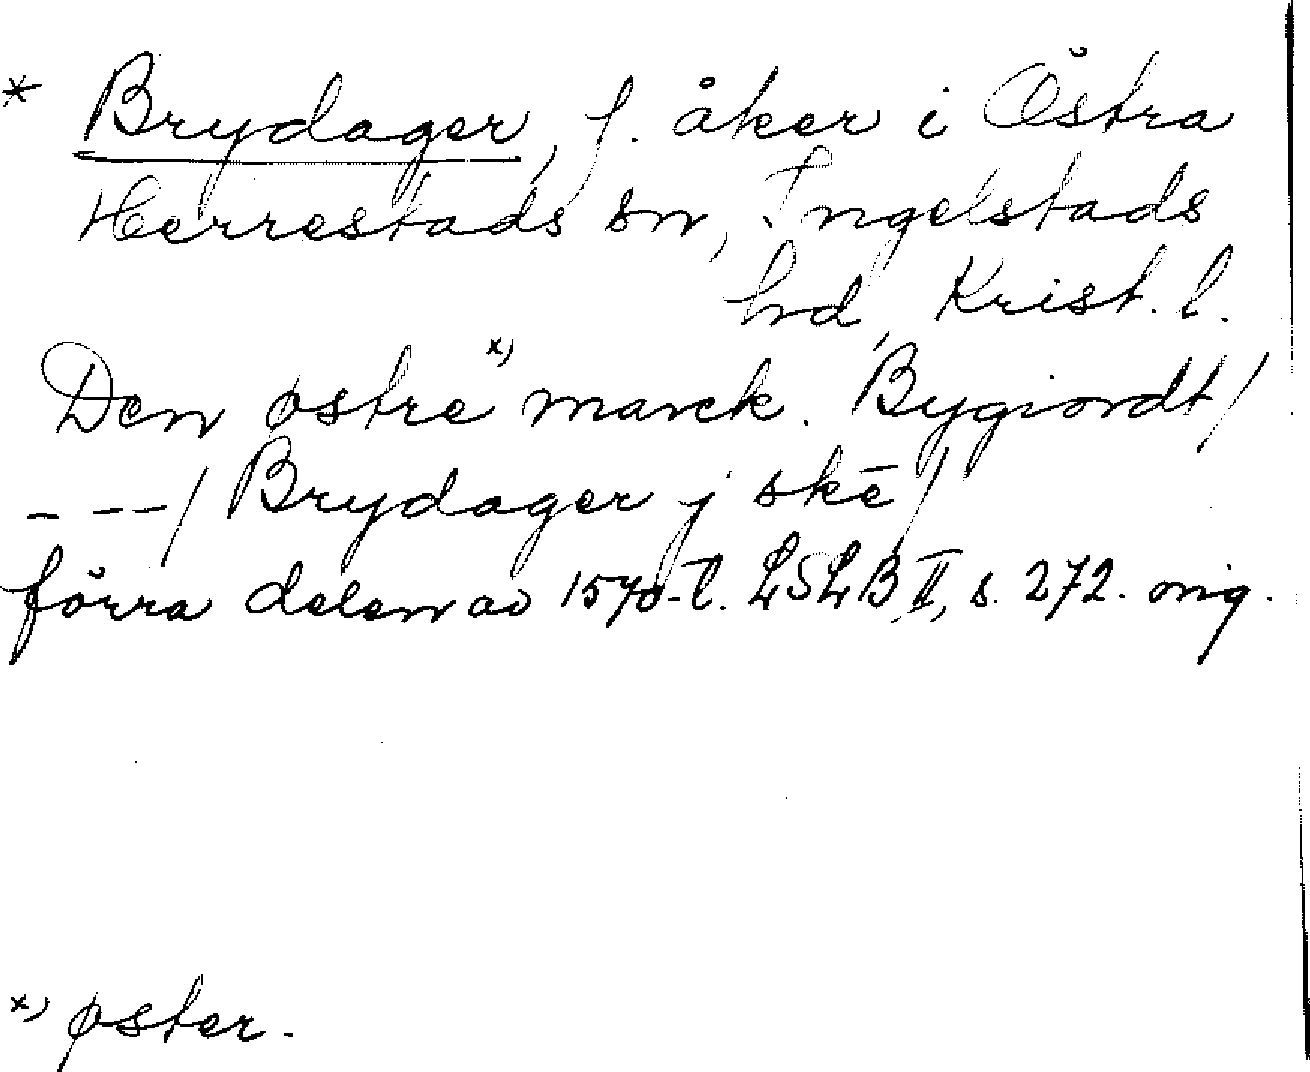 * Brydager, f. åker i Östra
Herrestads sn, Ingelstads
hd, Krist. l.
Den østre x) marck. Bygiordt/
- --/ Brydager j skē/
förra delen av 1570-t. LSLB, II, s. 272. orig.
x) øster.